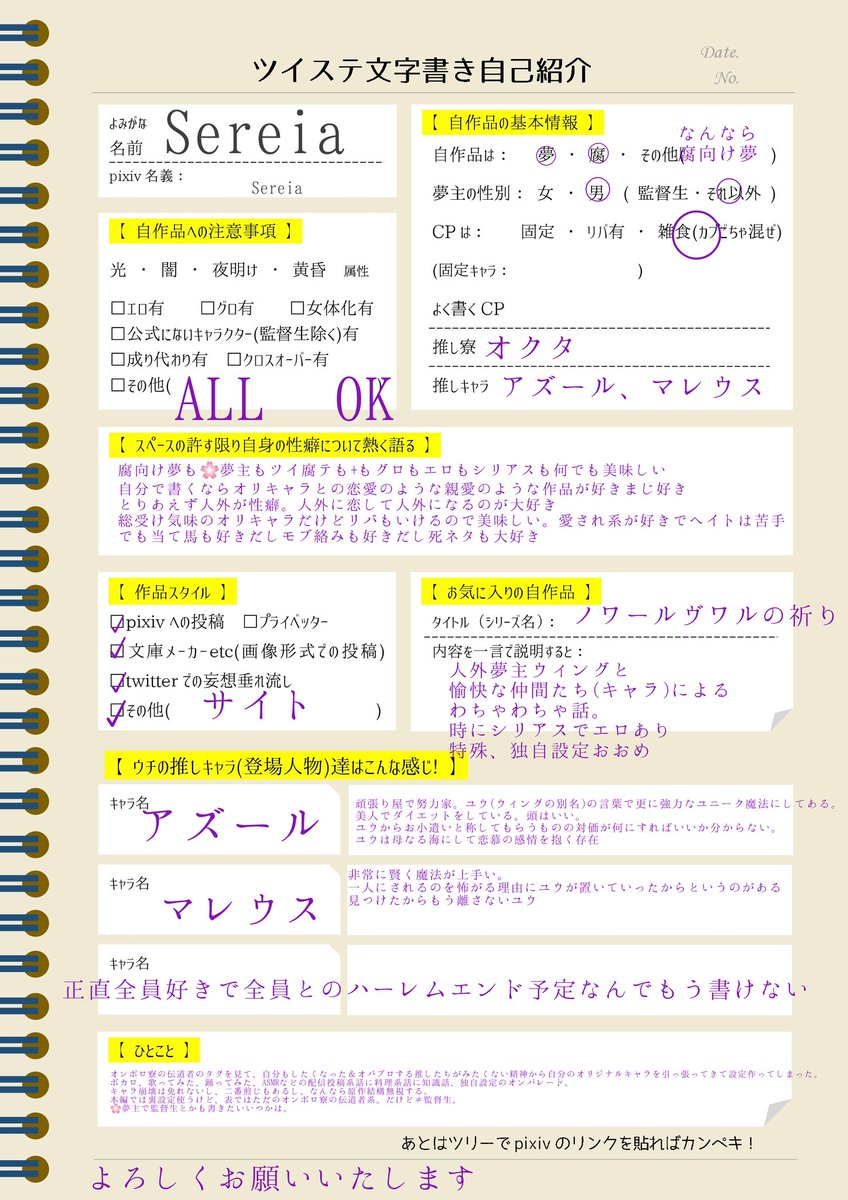 Date.
No.
ツイステ文字書き自己紹介
よみがな
名前 Sereia
pixiv 名義： Sereia
【 自作品の基本情報 】
なんなら
自作品は： 夢 ・ 腐 ・ その他(腐向け夢 )
夢主の性別： 女 ・ 男 ( 監督生・それ以外 )
CPは： 固定 ・ リバ有 ・ 雑食(カプごちゃ混ぜ)
(固定キャラ： )
よく書くCP
推し寮 オクタ
推しキャラ アズール、マレウス
【 自作品への注意事項 】
光 ・ 闇 ・ 夜明け ・ 黄昏 属性
□エロ有 □グロ有 □女体化有
□公式にないキャラクター(監督生除く)有
□成り代わり有 □クロスオーバー有
□その他( ALL OK )
【 スペースの許す限り自身の性癖について熱く語る 】
腐向け夢も🌸夢主もツイ腐テも+もグロもエロもシリアスも何でも美味しい
自分で書くならオリキャラとの恋愛のような親愛のような作品が好きまじ好き
とりあえず人外が性癖。人外に恋して人外になるのが大好き
総受け気味のオリキャラだけどリバもいけるので美味しい。愛され系が好きでヘイトは苦手
でも当て馬も好きだしモブ絡みも好きだし死ネタも大好き
【 作品スタイル 】
☑pixivへの投稿 □プライベッター
☑文庫メーカーetc(画像形式での投稿)
☑twitterでの妄想垂れ流し
☑その他( サイト )
【 お気に入りの自作品 】
タイトル（シリーズ名）： ノワールヴワルの祈り
内容を一言で説明すると：
人外夢主ウィングと
愉快な仲間たち(キャラ)による
わちゃわちゃ話。
時にシリアスでエロあり
特殊、独自設定おおめ
【 ウチの推しキャラ(登場人物)達はこんな感じ! 】
キャラ名
アズール
頑張り屋で努力家。ユウ(ウィングの別名)の言葉で更に強力なユニーク魔法にしてある。
美人でダイエットをしている。頭はいい。
ユウからお小遣いと称してもらうものの対価が何にすればいいか分からない。
ユウは母なる海にして恋慕の感情を抱く存在
キャラ名
マレウス
非常に賢く魔法が上手い。
一人にされるのを怖がる理由にユウが置いていったからというのがある
見つけたからもう離さないユウ
キャラ名
正直全員好きで全員とのハーレムエンド予定なんでもう書けない
【 ひとこと 】
オンボロ寮の伝道者のタグを見て、自分もしたくなった＆オバブロする推したちがみたくない精神から自分のオリジナルキャラを引っ張ってきて設定作ってしまった。
ボカロ、歌ってみた、踊ってみた、ASMRなどの配信投稿系話に料理系話に知識話、独自設定のオンパレード。
キャラ崩壊は免れないし、二番煎じもあるし、なんなら原作結構無視する。
本編では裏設定使うけど、表ではただのオンボロ寮の伝道者系。だけど≠監督生。
🌸夢主で監督生とかも書きたいいつかは。
あとはツリーでpixivのリンクを貼ればカンペキ！
よろしくお願いいたします